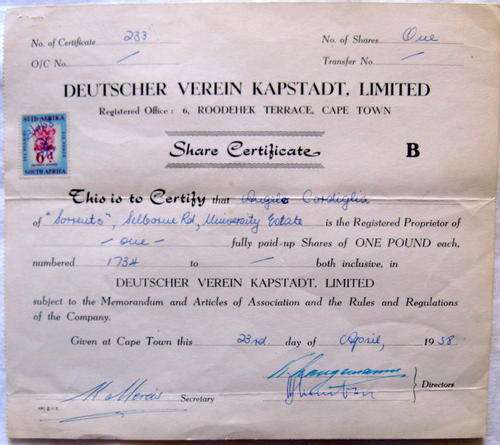 No. of Certificate 233 No. of Shares One
O/C No. / Transfer No. /
DEUTSCHER VEREIN KAPSTADT, LIMITED
Registered Office : 6, ROODEHEK TERRACE, CAPE TOWN
SUID-AFRIKA
6d
SOUTH AFRICA
Share Certificate B
This is to Certify that Angelo Cordiglia
of "Sorrento", Selborne Rd, University Estate is the Registered Proprietor of
- one - fully paid-up Shares of ONE POUND each,
numbered 1734 to - both inclusive, in
DEUTSCHER VEREIN KAPSTADT, LIMITED
subject to the Memorandum and Articles of Association and the Rules and Regulations
of the Company.
Given at Cape Town this 23rd day of April, 1958
Secretary
Directors